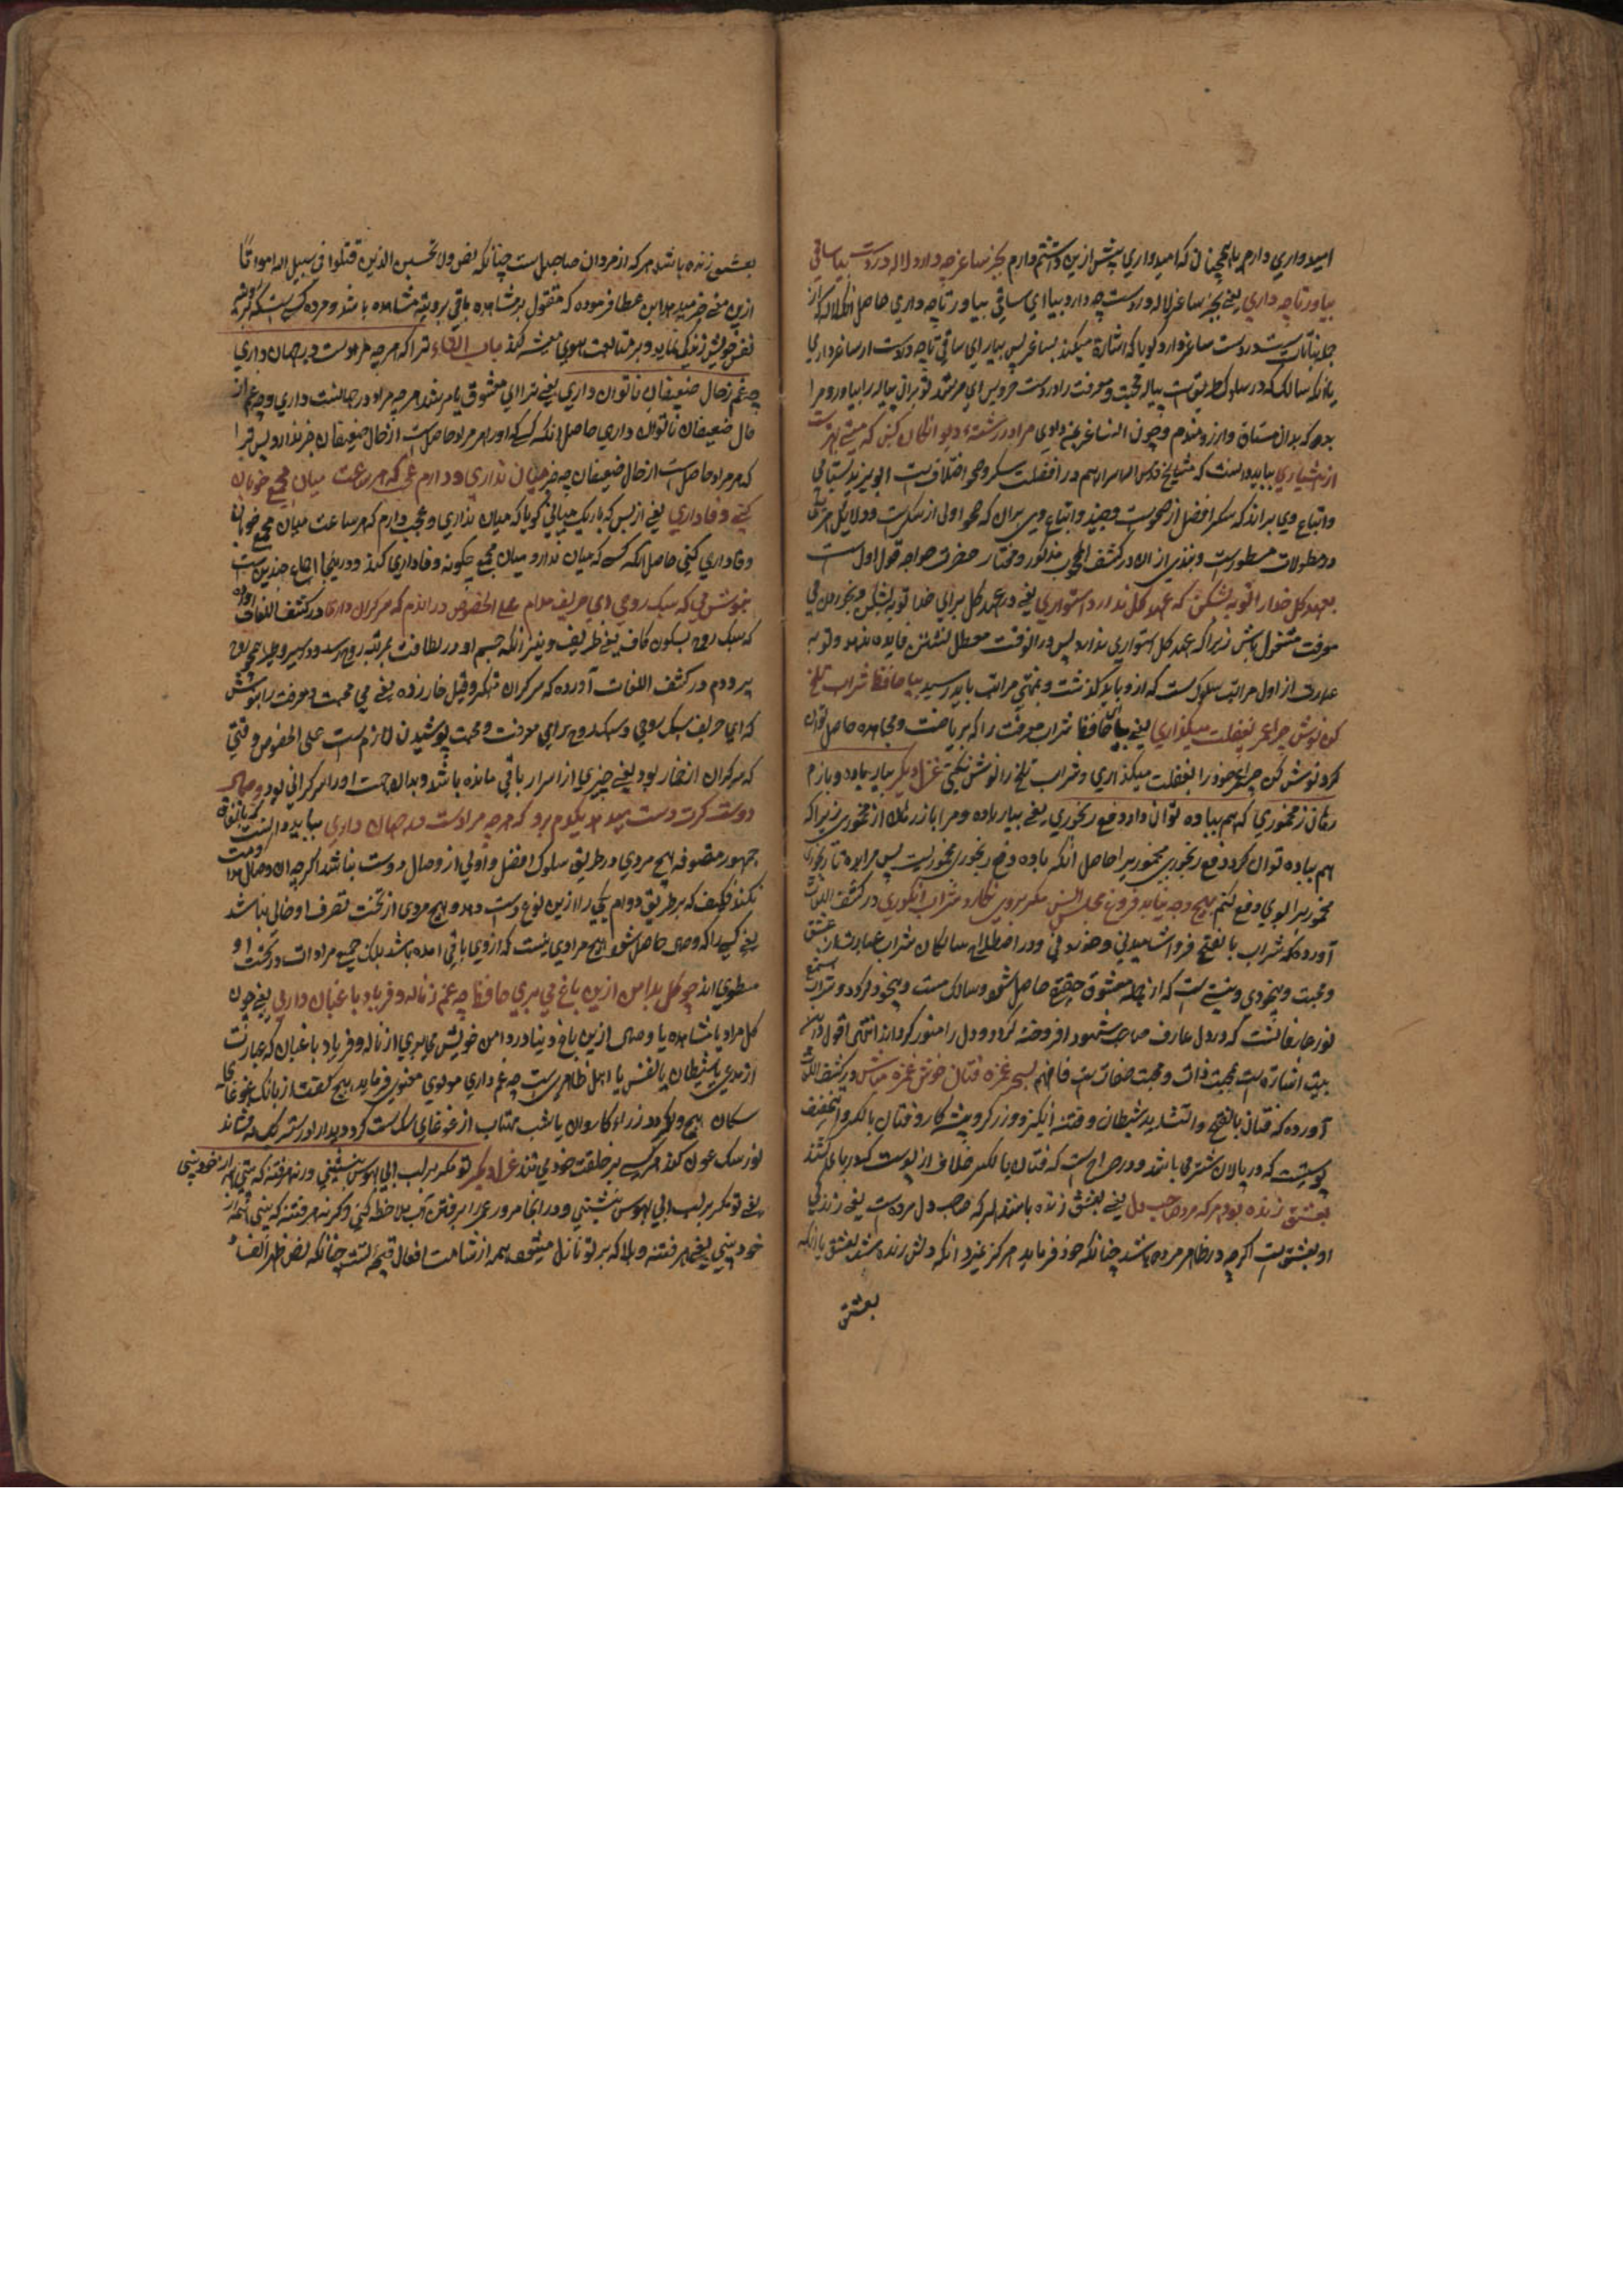 امیدواری دارم یا همچنان که امیدواری پیش ازین داشتم دارم بجز ساغر چه دارد لاله در دست بیا ساقی
بیاور تا چه داری یعنی بجز ساغر لاله در دست چه دارد بیا ای ساقی بیاور تا چه داری حاصل آنکه لاله که از
ساغر دارد گویا که اشارة میکند بساغر پس بیار ای ساقی تا چه در دست از ساغر داری
یا آنکه سالک که در سلوک طریقت پیاله محبت و معرفت را در دست
بده که بدان مشتاق و آرزومندم و چون آن ساغر مرا در رشتهٔ دیوانگان کش که مستی بهترست
از هشیاری بباید دانست که مشایخ قدس الله اسرارهم در افضلیت سکر و صحو اختلاف است ابو یزید بسطامی
و اتباع وی برانند که سکر افضل از صحوست و جنید و اتباع وی بران که صحو اولی از سکرست و دلایل هر
در مطولات مسطورست و بعضی از ان در کشف المحجوب مذکور و مختار حضرت خواجه قول اول است
بعهد گل خدا را توبه بشکن که عهد گل ندارد استواری یعنی در عهد گل برای خدا توبه بشکن و بخوردن می
معرفت مشغول باش زیرا که عهد گل استواری ندارد پس در آن وقت معطل نشستن فایده ندهد و توبه
عبارت از اول مراتب سلوک است که ازو باید گذشت و بمنتهی مراتب باید رسید بیا حافظ شراب تلخ
کن نوش چرا عمر بغفلت میگذاری یعنی بیا ای حافظ شراب معرفت را که بریاضت و مجاهده حاصل توان
کرد نوش کن چرا عمر خود را بغفلت میگذاری و شراب تلخ را نوش نکنی غزل دیگر بیار باده و بازم
رهان ز مخموری که هم بباده توان داد دفع رنجوری یعنی بیار باده و مرا باز رهان از مخموری زیرا که
هم بباده توان کرد دفع رنجوری مخموری را حاصل آنکه باده دفع رنجوری مخموریست پس مرا بده تا رنجوری
مخموری را بوی دفع کنم بهیچ وجه نباشد فروغ مجلس انس مگر بروی نگار و شراب انگوری در کشف اللغات
آورده که شراب بالفتح فرو آشامیدنی و خوردنی و در اصطلاح سالکان شراب عبارت از عشق
و محبت و بیخودی و مستی است که از جلوهٔ معشوق حقیقی حاصل شود و سالک مست و بیخود گردد و شراب شمع
نور عارفانست که در دل عارف صاحب شهود افروخته گردد و دل را منور گرداند انتهی اقول درین
بیت اشارة است بمحبت ذات و محبت صفات فافهم بسحر غمزه فتان خوش غمزه مباش در کشف اللغات
آورده که فتان بالفتح والتشدید شیطان و فتنه انگیز و زرگر و فتان بالکسر و التخفیف
پوستیست که در پالان شتر می باشد و در صراح است که فتان بالکسر غلاف از پوست
بعشق زنده بود هر که مرد صاحب دل یعنی بعشق زنده باشد هر که صاحب دل مرد است یعنی زندگی
او بعشق است اگرچه در ظاهر مرده باشد چنانکه خود فرماید هرگز نمیرد آنکه دلش زنده شد بعشق یا آنکه
بعشق
بعشق زنده باشد هر که از مردان صاحبدل است چنانکه نص ولا تحسبن الذین قتلوا فی سبیل الله امواتا
ازین معنی خبر میدهد ابن عطا فرموده که مقتول بر مشاهده باقی برویة مشاهده باشد و مرده کسیست که
نفس خویش زندگی نماید و بر متابعت هوی معیشه کند باب الیاء ترا که هر چه مرادست در جهان داری
چه غم ز حال ضعیفان ناتوان داری یعنی ترا ای معشوق یا مرشد هر چه مراد در جهانست داری و چه غم از
حال ضعیفان ناتوان داری حاصل آنکه کسی که او را هر مراد حاصل است از حال ضعیفان خبر ندارد پس ترا
که هر مراد حاصل است از حال ضعیفان چه خبر میان نداری و دارم عجب که هر ساعت میان مجمع خوبان
کنی وفاداری یعنی از بس که باریک میانی گویا که میان نداری و عجب دارم که هر ساعت میان مجمع خوبان
وفاداری کنی حاصل آنکه کسی که میان ندارد میان مجمع چگونه وفاداری کند و درینجا
بنوش می که سبک روحی ای حریف مدام علی الخصوص در آن دم که سر گران داری در کشف اللغات آورده
که سبک روح بسکون کاف یعنی ظریف و نیز آنکه جسم او در لطافت بمرتبه روح رسد و سیر او همچو روح
پرد و هم در کشف اللغات آورده که سرگران متکبر و قیل خمار زده یعنی می محبت و معرفت را بنوش
که ای حریف سبک روحی و سبک روح برای معرفت و محبت پوشیدن لازم است علی الخصوص وقتی
که سرگران از خمار بود یعنی چیزی از اسرار باقی مانده باشد و بدان جهت او را سرگرانی بود وصال
دوست گرت دست میدهد یکدم برو که هر چه مرادست در جهان داری بباید دانست که باتفاق
جمهور متصوفه هیچ مردی در طریق سلوک افضل و اولی از وصال دوست نباشد اگرچه آن وصال مداومت
نکند فکیف که بر طریق دوام یکی را ازین نوع دست دهد و هیچ مردی از تحت تصرف او خالی نباشد
یعنی کسی را که وصال حاصل شود هیچ مرادی نیست که از وی باقی مانده باشد بلکه جمیع مرادات در تحت او
مطوی اند چو گل بدامن ازین باغ می بری حافظ چه غم ز ناله و فریاد باغبان داری یعنی چون
گل مراد یا مشاهده یا وصال ازین باغ دنیا در دامن خویش می بری از ناله و فریاد باغبان که عبارت
از مدعی یا شیطان یا نفس یا اهل ظاهر است چه غم داری مولوی معنوی فرماید، هیچ گفت از بانگ و غوغای
سگان هیچ واگردد ز راه کاروان یا شب مهتاب از غوغای سگ سست گردد بدر را در سیر تک مه فشاند
نور سگ عوعو کند هر کسی بر خلقت خود می تند غزل دیگر تو مگر بر لب آبی بهوس بنشینی ورنه هر فتنه که بینی همه از خود بینی
یعنی تو مگر بر لب آبی بهوس بنشینی و در آنجا مرور عمر را برفتن آب ملاحظه کنی وگرنه هر فتنه که بینی همه از
خود بینی یعنی هر فتنه و بلا که بر تو نازل میشود همه از شامت افعال قبیحهٔ تست چنانکه نص ظهر الفساد